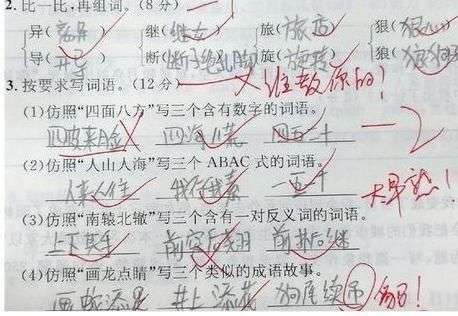 2.比一比,再组词。(8分)
异( ) 继(继女) 旅(旅店) 狠(狠心)
导( ) 断( ) 旋(旋转) 狼( )
3.按要求写词语。(12分) 谁教你的!
(1)仿照“四面八方”写三个含有数字的词语。
四 四海 四五二十 -2
(2)仿照“人山人海”写三个 ABAC 式的词语。
人来人往 我行我素 一五一十
(3)仿照“南辕北辙”写三个含有一对反义词的词语。
上下其手 前突后翘 前扑后继
(4)仿照“画龙点睛”写三个类似的成语故事。
画蛇添足 井上添花 狗尾续